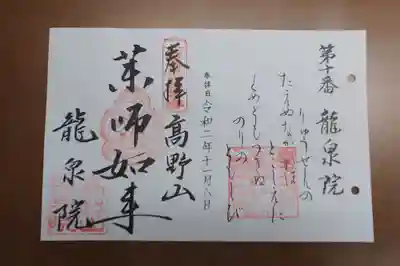 第十番 龍泉院
りゅうせんの
たえぬながれは
とこしえに
くめどもつきぬ
のりの
ともしび
参拝日 令和二年十一月八日
奉拝 高野山
薬師如来
龍泉院